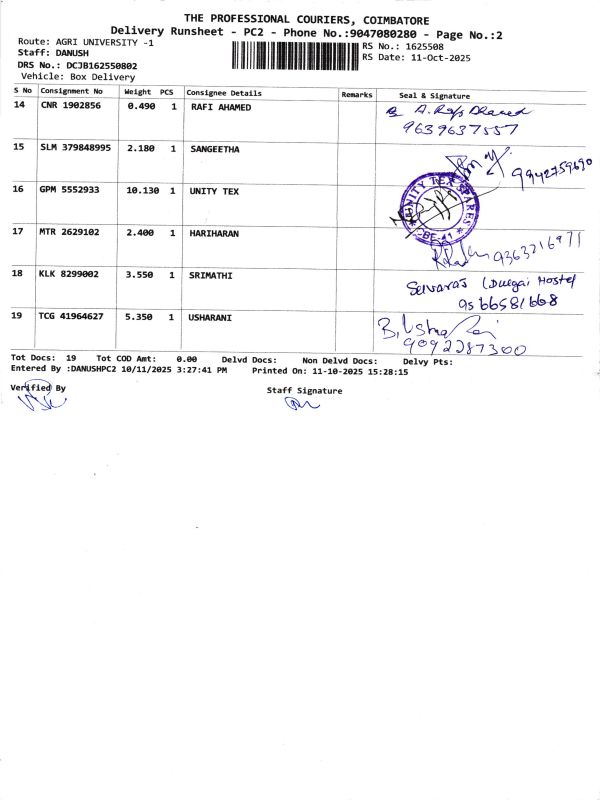 THE PROFESSIONAL COURIERS, COIMBATORE
Delivery Runsheet - PC2 - Phone No.:9047080280 - Page No.:2
Route: AGRI UNIVERSITY -1
Staff: DANUSH
DRS No.: DCJB162550802
Vehicle: Box Delivery
RS No.: 1625508
RS Date: 11-Oct-2025
S No Consignment No Weight PCS Consignee Details Remarks Seal & Signature
14 CNR 1902856 0.490 1 RAFI AHAMED
9639637557
15 SLM 379848995 2.180 1 SANGEETHA
9942759690
16 GPM 5552933 10.130 1 UNITY TEX
UNITY TEX SPARES
CBE-11
17 MTR 2629102 2.400 1 HARIHARAN
9363216971
18 KLK 8299002 3.550 1 SRIMATHI
Selvaraj (Durgai Hostel
9566581668
19 TCG 41964627 5.350 1 USHARANI
B. Usha Rani
9092287300
Tot Docs: 19 Tot COD Amt: 0.00 Delvd Docs: Non Delvd Docs: Delvy Pts:
Entered By :DANUSHPC2 10/11/2025 3:27:41 PM Printed On: 11-10-2025 15:28:15
Verified By
Staff Signature